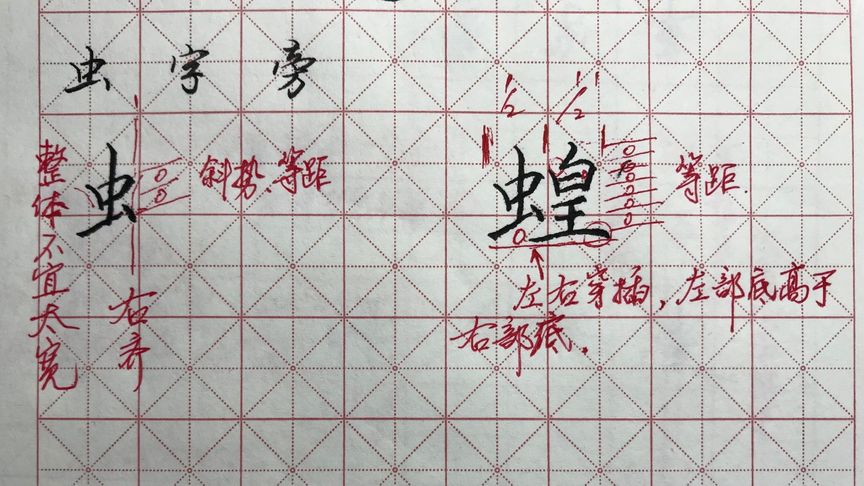 虫字旁
1/2 1/2
整体不宜太宽
虫
斜势、等距
右齐
蝗
等距.
左右穿插，左部底高于
右部底.